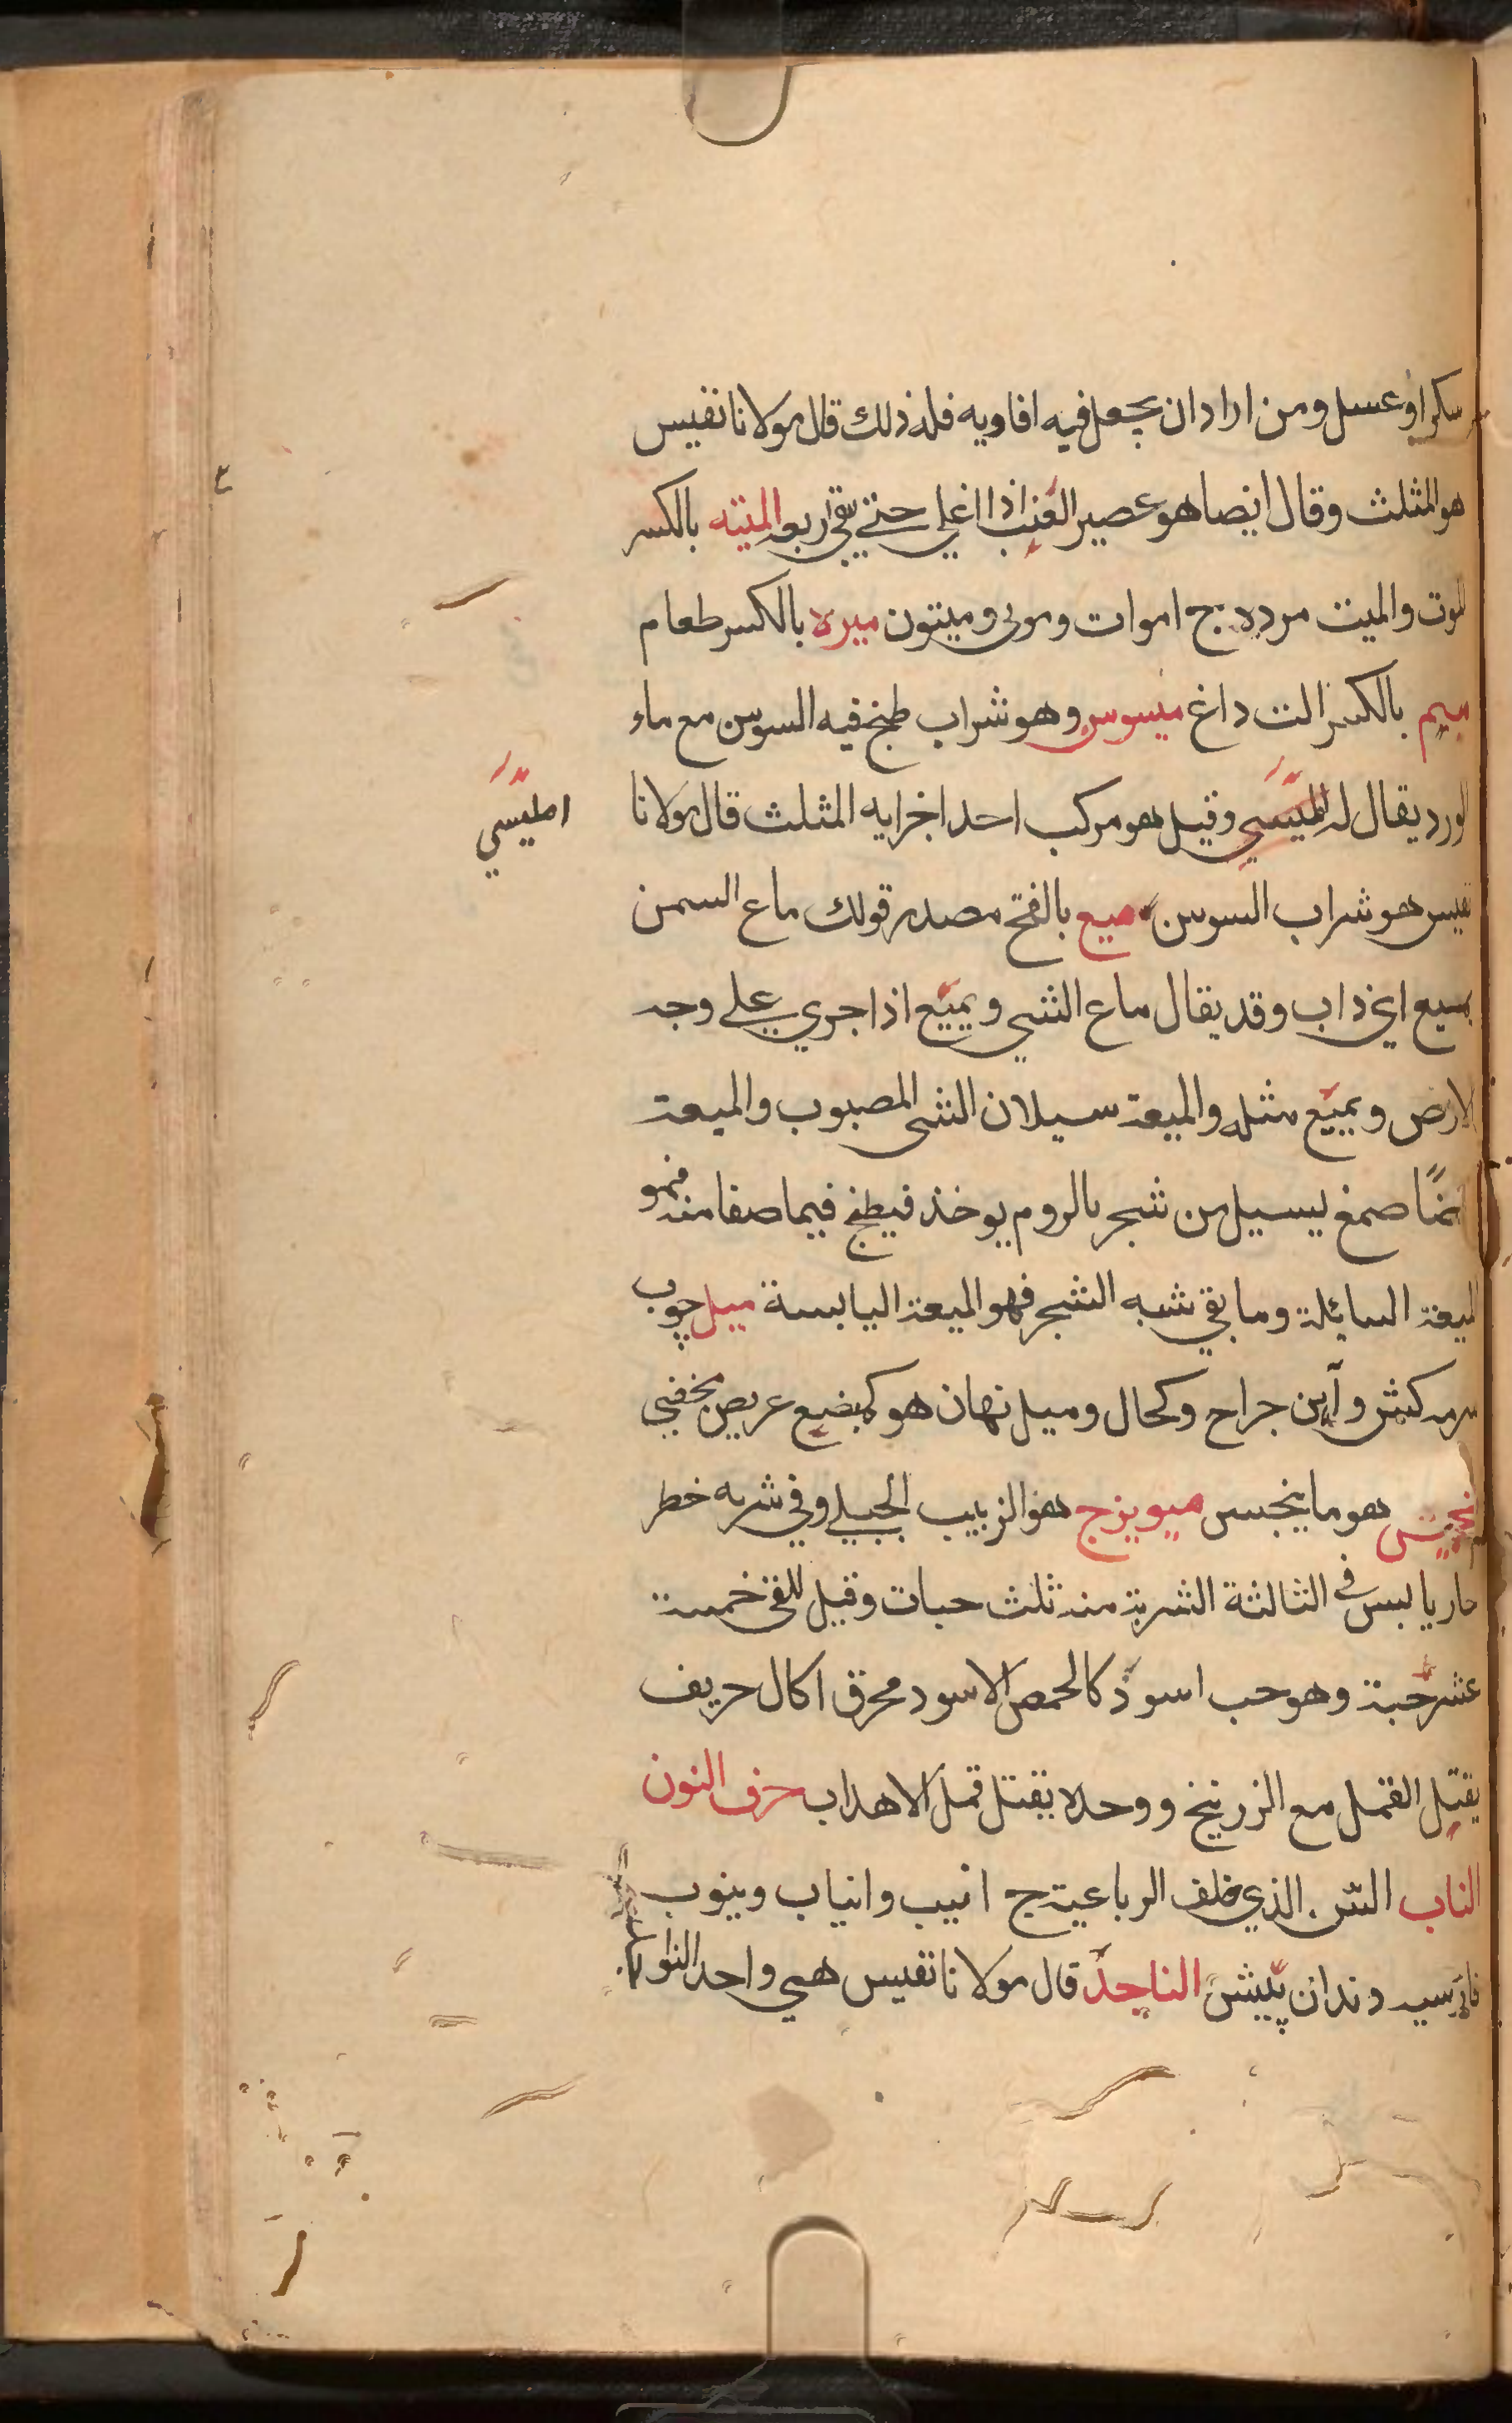 سكر او عسل ومن اراد ان يجعل فيه افاويه فله ذلك قال مولانا نفيس
هو المثلث وقال ايضا هو عصير العنب اذا اغلي حتي يبقي اربعه الميته بالكسر
الموت والميت مرده ج اموات وموتى وميتون ميره بالكسر طعام
ميسم بالكسر الت داغ ميسوس وهو شراب طبخ فيه السوسن مع ماء
الورد يقال له الميسي وقيل هو مركب احد اجزايه المثلث قال مولانا
امليسي
نفيس هو شراب السوسن ميع بالفتح مصدر قولك ماع السمن
يميع اي ذاب وقد يقال ماع الشي ويميع اذا جري علي وجه
الارض ويميع مثله والميعة سيلان الشي المصبوب والميعة
ايضًا صمغ يسيل من شجر بالروم يوخذ فيطبخ فيما صفا منه فهو
الميعة السائلة وما بقي شبه الشجر فهو الميعة اليابسة ميل چوب
سرمه كش وآهن جراح وكحال وميل نهان هو كمبضع عريض مخفي
هو ما ينجس ميويزج هو الزبيب الجبلي وفي شربه خطر
حار يابس في الثالثة الشربة منه ثلث حبات وقيل للقي خمسة
عشر حبة وهو حب اسود كالحمص الاسود محرق اكال حريف
يقتل القمل مع الزرنيخ ووحده يقتل قمل الاهداب حرف النون
الناب السن الذي خلف الرباعية ج انيب وانياب وينوب
دندان پيش الناجذ قال مولانا نفيس هي واحد النواجذ